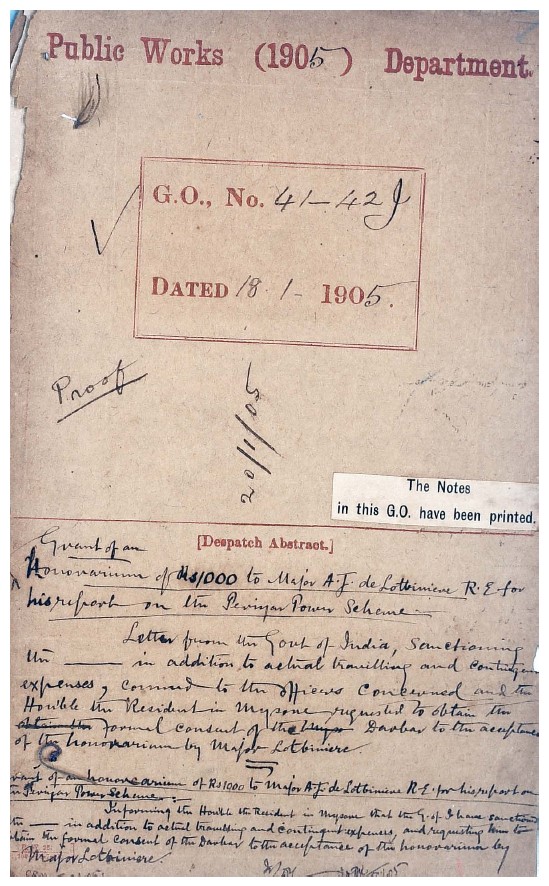 Public Works (1905) Department.
G.O., No. 41-42 J
DATED 18-1-1905.
Proof
20/1/05
The Notes
in this G.O. have been printed.
[Despatch Abstract.]
Grant of an
Honorarium of Rs1000 to Major A.J. de Lotbiniere R.E for
his report on the Periyar Power Scheme
Letter from the Govt of India, Sanctioning
the —— in addition to actual travelling and contingent
expenses, commd to the officers concerned and the
Hon'ble the Resident in Mysore requested to obtain the
formal consent of the Darbar to the acceptance
of the honorarium by Major Lotbiniere.
Grant of an honorarium of Rs1000 to Major A.J. de Lotbiniere R.E. for his report on
the Periyar Power Scheme:
Informing the Honble the Resident in Mysore that the G. of I have sanctioned
the —— in addition to actual travelling and contingent expenses, and requesting him to
obtain the formal consent of the Darbar to the acceptance of the honorarium by
Major Lotbiniere.